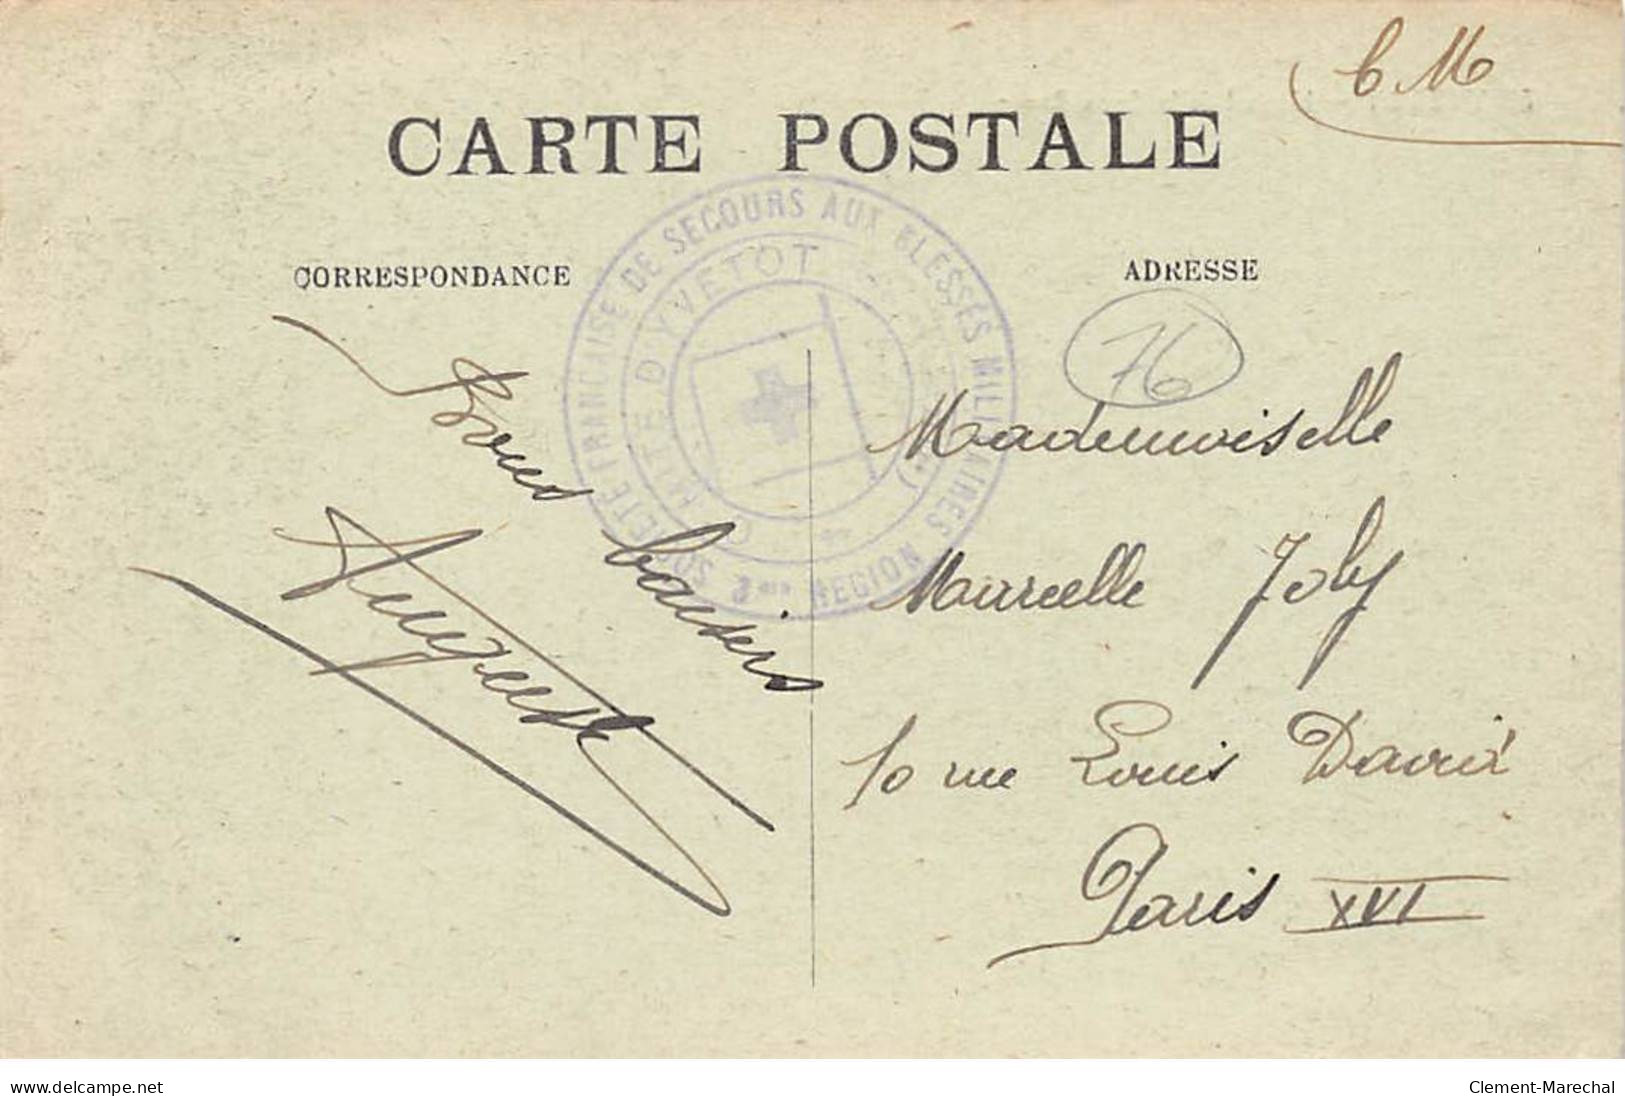 C M
CARTE POSTALE
SOCIÉTÉ FRANÇAISE DE SECOURS AUX BLESSÉS MILITAIRES
3ème RÉGION
COMITÉ D'YVETOT
CORRESPONDANCE
Bons baisers
Auguste
ADRESSE
76
Mademoiselle
Marcelle Joly
10 rue Louis David
Paris XVI
www.delcampe.net
Clement-Marechal